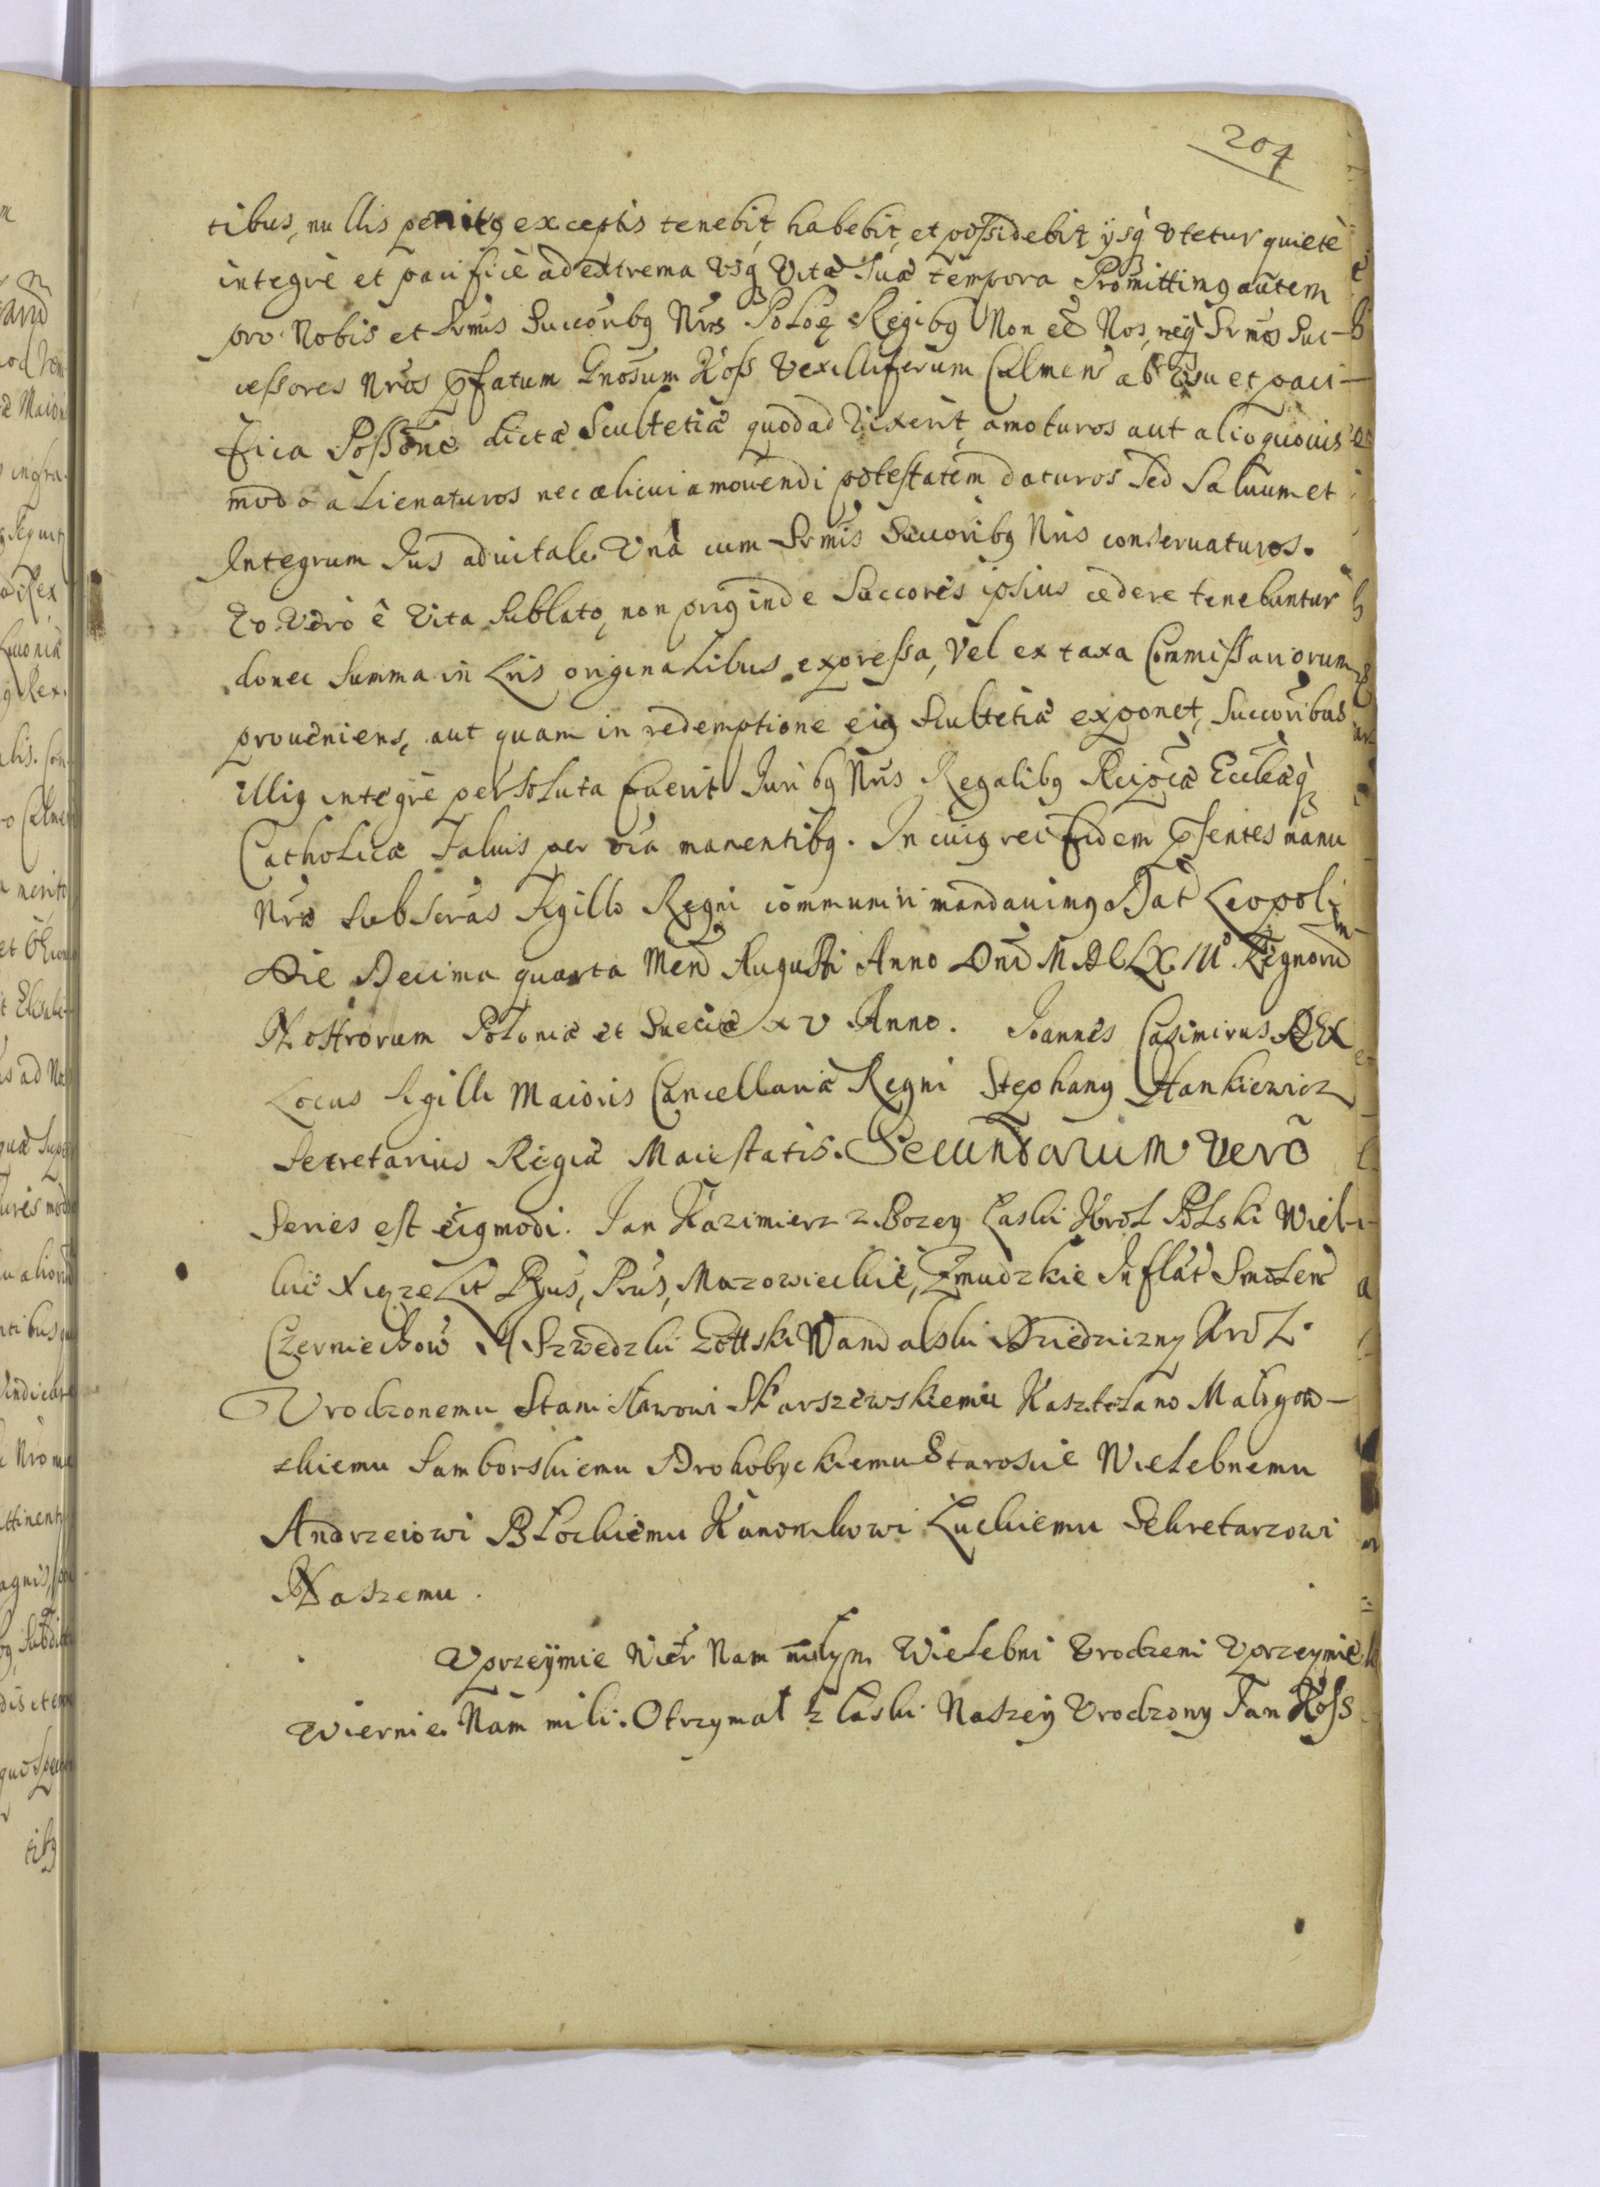 204
tibus, nullis penitq exceptis tenebit, habebit, et possidebit ijsq Vtetur quietè
integrè et pacificè ad extrema Vsq Vitæ Suæ tempora Promittimq autem
pro Nobis et Srmis Succoribq Nris Poloę Regibq Non eē Nos, neq Srmos Suc-
cessores Nros pfatum Gnosum Koss Vexilliferum Calmen ab Vsu et paci-
fica Possone dictæ Scultetiæ quod ad Vixerit, amoturos aut alio quouis
modo alienaturos nec alicui amouendi potestatem daturos Sed Saluum et
Integrum Jus aduitale Vnà cum Srmis Succoribq Nris conseruaturos.
Eo Vero ê Vita Sublato, non priq inde Succores ipsius cedere tenebuntur
donec Summa in Lris originalibus expressa, Vel ex taxa Commissariorum
proueniens, aut quam in redemptione eiq Scultetiæ exponet, Succoribus
illiq integrè persoluta fuerit Juribq Nris Regalibq Reipcæ Ecclæq
Catholicæ Saluis per oīa manentibq. In cuiq rei fidem psentes manu
Nra Subscras Sigillo Regni communiri mandauimq Dat Leopoli
Die Decima quarta Mens Augusti Anno Dni MDCLXIII Regnoru
Nostrorum Poloniæ et Sueciæ XV Anno. Joannes Casimirus REX
Locus Sigilli Maioris Cancellariæ Regni Stephanq Hankiewicz
Secretarius Regiæ Maiestatis. Secundarum Verò
Series est eiqmodi. Jan Kazimierz z Bozey Laski Krol Polski Wiel-
kie Xiąze Lit Rus, Prus, Mazowieckie, Zmudzkie Inflat Smolen
Czerniechow A Szwedzki Gottski Wandalski Dziedziczny Krol
Vrodzonemu Stanisławowi Skarszewskiemu Kasztelano Małogow-
skiemu Samborskiemu Drohobyckiemu Staroscie Wielebnemu
Andrzeiowi Błockiemu Kanonikowi Łuckiemu Sekretarzowi
Naszemu.
Vprzeymie Wier Nam miłym Wielebni Vrodzeni Vprzeymie
Wiernie Nam mili. Otrzymał z łaski Naszey Vrodzony Jan Koss